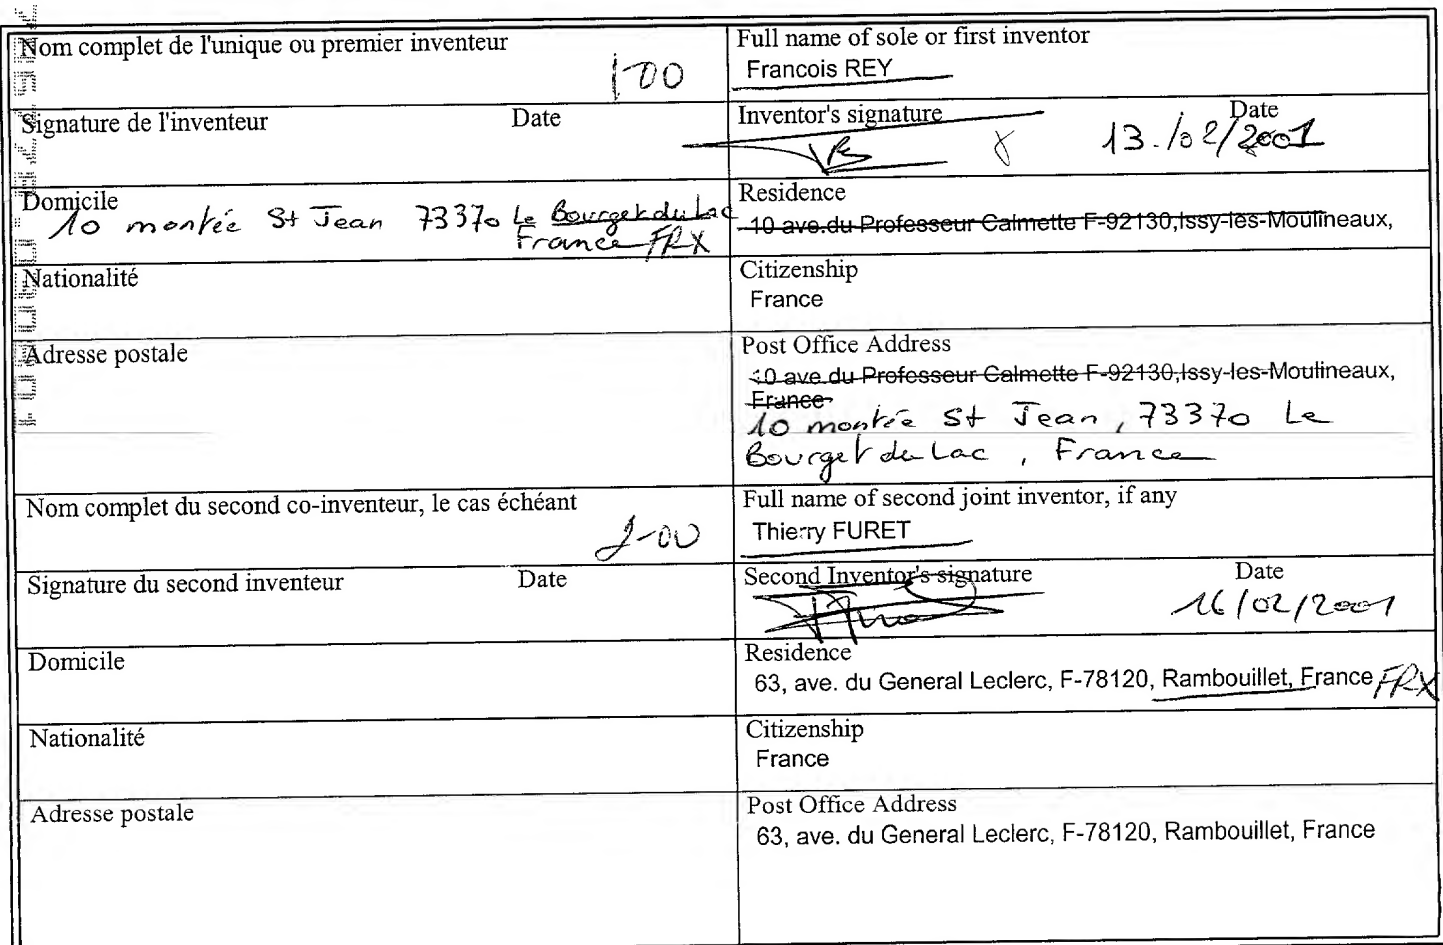 Nom complet de l'unique ou premier inventeur
1-00
Full name of sole or first inventor
Francois REY
Signature de l'inventeur Date
Inventor's signature Date
13/02/2001
Domicile
10 montée St Jean 73370 Le Bourget du Lac
France FRX
Residence
10 ave.du Professeur Calmette F-92130,Issy-les-Moulineaux,
Nationalité
Citizenship
France
Adresse postale
Post Office Address
10 ave.du Professeur Calmette F-92130,Issy-les-Moulineaux,
France
10 montée St Jean, 73370 Le
Bourget du Lac, France
Nom complet du second co-inventeur, le cas échéant
2-00
Full name of second joint inventor, if any
Thierry FURET
Signature du second inventeur Date
Second Inventor's signature Date
16/02/2001
Domicile
Residence
63, ave. du General Leclerc, F-78120, Rambouillet, France FRX
Nationalité
Citizenship
France
Adresse postale
Post Office Address
63, ave. du General Leclerc, F-78120, Rambouillet, France